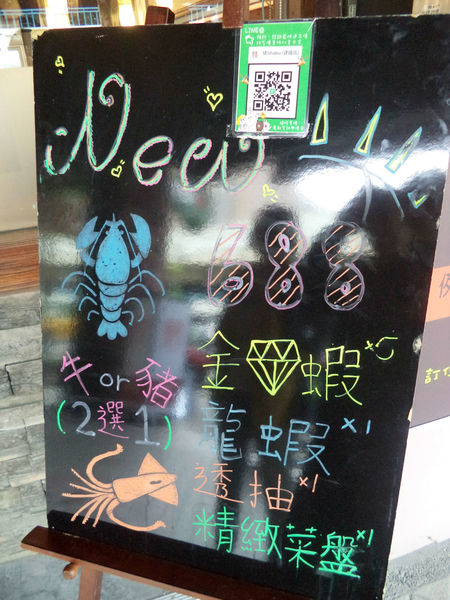 LINE@
New
688
牛 or 豬
(2選1)
金 蝦 x5
龍蝦 x1
透抽 x1
精緻菜盤 x1